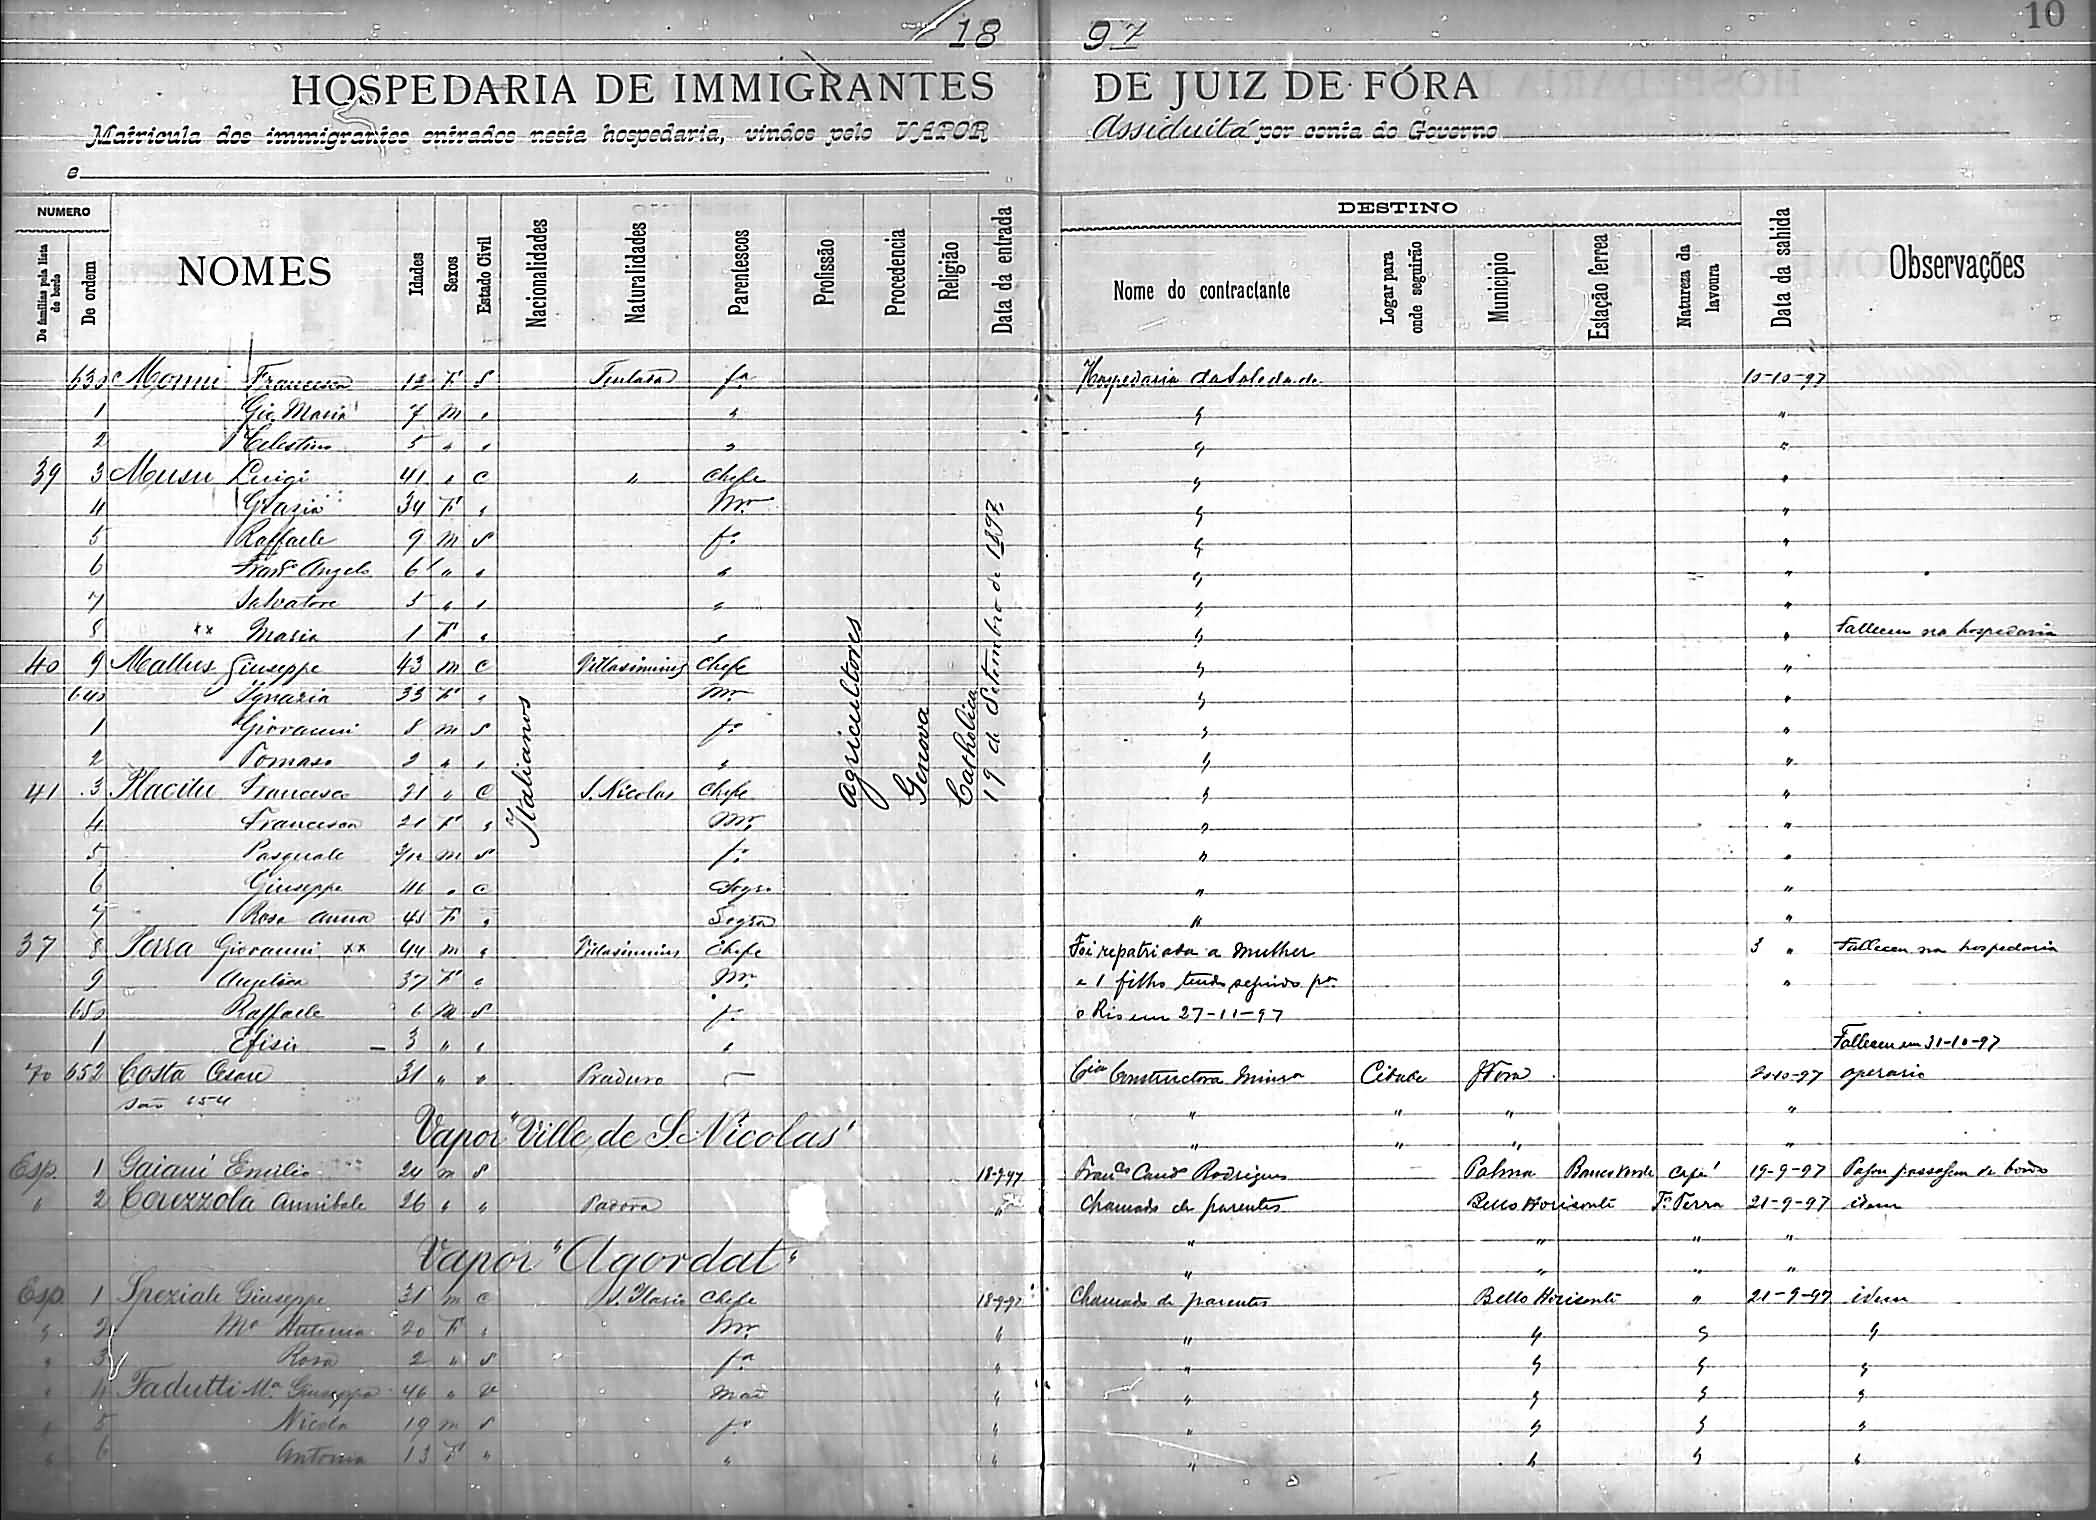 10
18 97
HOSPEDARIA DE IMMIGRANTES DE JUIZ DE FÓRA
Matricula dos immigrantes entrados nesta hospedaria, vindos pelo VAPOR Assiduitá por conta do Governo
e
NUMERO
De familias pela lista de bordo
De ordem
NOMES
Idades
Sexos
Estado Civil
Nacionalidades
Naturalidades
Parentescos
Profissão
Procedencia
Religião
Data da entrada
DESTINO
Nome do contractante
Logar para onde seguirão
Municipio
Estação ferrea
Natureza da lavoura
Data da sahida
Observações
Italianos
Agricultores
Genova
Catholica
19 de Setembro de 1897
630 Monni Francesca 12 F S Teulada fa Hospedaria da Soledade 10-10-97
1 Gio Maria 7 M " " " "
2 Celestino 5 " " " " "
39 3 Musu Luigi 41 " C " Chefe " "
4 Grazia 34 F " Mr " "
5 Raffaele 9 M S fo " "
6 Franco Angelo 6 " " " " "
7 Salvatore 5 " " " " "
8 xx Maria 1 F " " " " Falleceu na hospedaria
40 9 Mallus Giuseppe 43 M C Villasimius Chefe " "
640 Ignazia 33 F " Mr " "
1 Giovanni 8 M S fo " "
2 Tomaso 2 " " " " "
41 3 Placitu Francesco 31 " C S. Nicolas Chefe " "
4 Francesca 21 F " Mr " "
5 Pasquale M S fo " "
6 Giuseppe " C Sogro " "
7 Rosa Anna 45 F " Sogra " "
37 8 Perra Giovanni xx 44 M " Villasimius Chefe Foi repatriada a mulher 3 " Falleceu na hospedaria
9 37 F " Mr e 1 filho tendo seguido pa "
650 Raffaele 6 M S fo o Rio em 27-11-97
1 Efisio 3 " " " Falleceu em 31-10-97
70 652 Costa Cesare 31 " " Cia Constructora Mineira Cidade JFora 20-10-97 operario
São 654 " " " "
Vapor "Ville de S. Nicolas" " " " "
Esp. 1 Gaiani Emilio 24 M S 18-9-97 Franco Cando Rodrigues Palma Banco Verde Café 19-9-97 Pagou passagem de bordo
" 2 Annibale 26 " " Padova " Chamado de parentes Bello Horisonte Fa Terra 21-9-97 idem
" " " "
Vapor "Agordat" " " " "
Esp. 1 Speziale Giuseppe 31 M C S. Ilario Chefe 18-9-97 Chamado de parentes Bello Horisonte " 21-9-97 idem
" 2 Ma 20 F " Mr " " " " "
" 3 Rosa 2 " S fa " " " " "
" 4 Fadutti Ma Giuseppa 46 " V Mãe " " " " "
" 5 Nicola 19 M S fo " " " " "
" 6 Antonia 13 F " " " " " " "